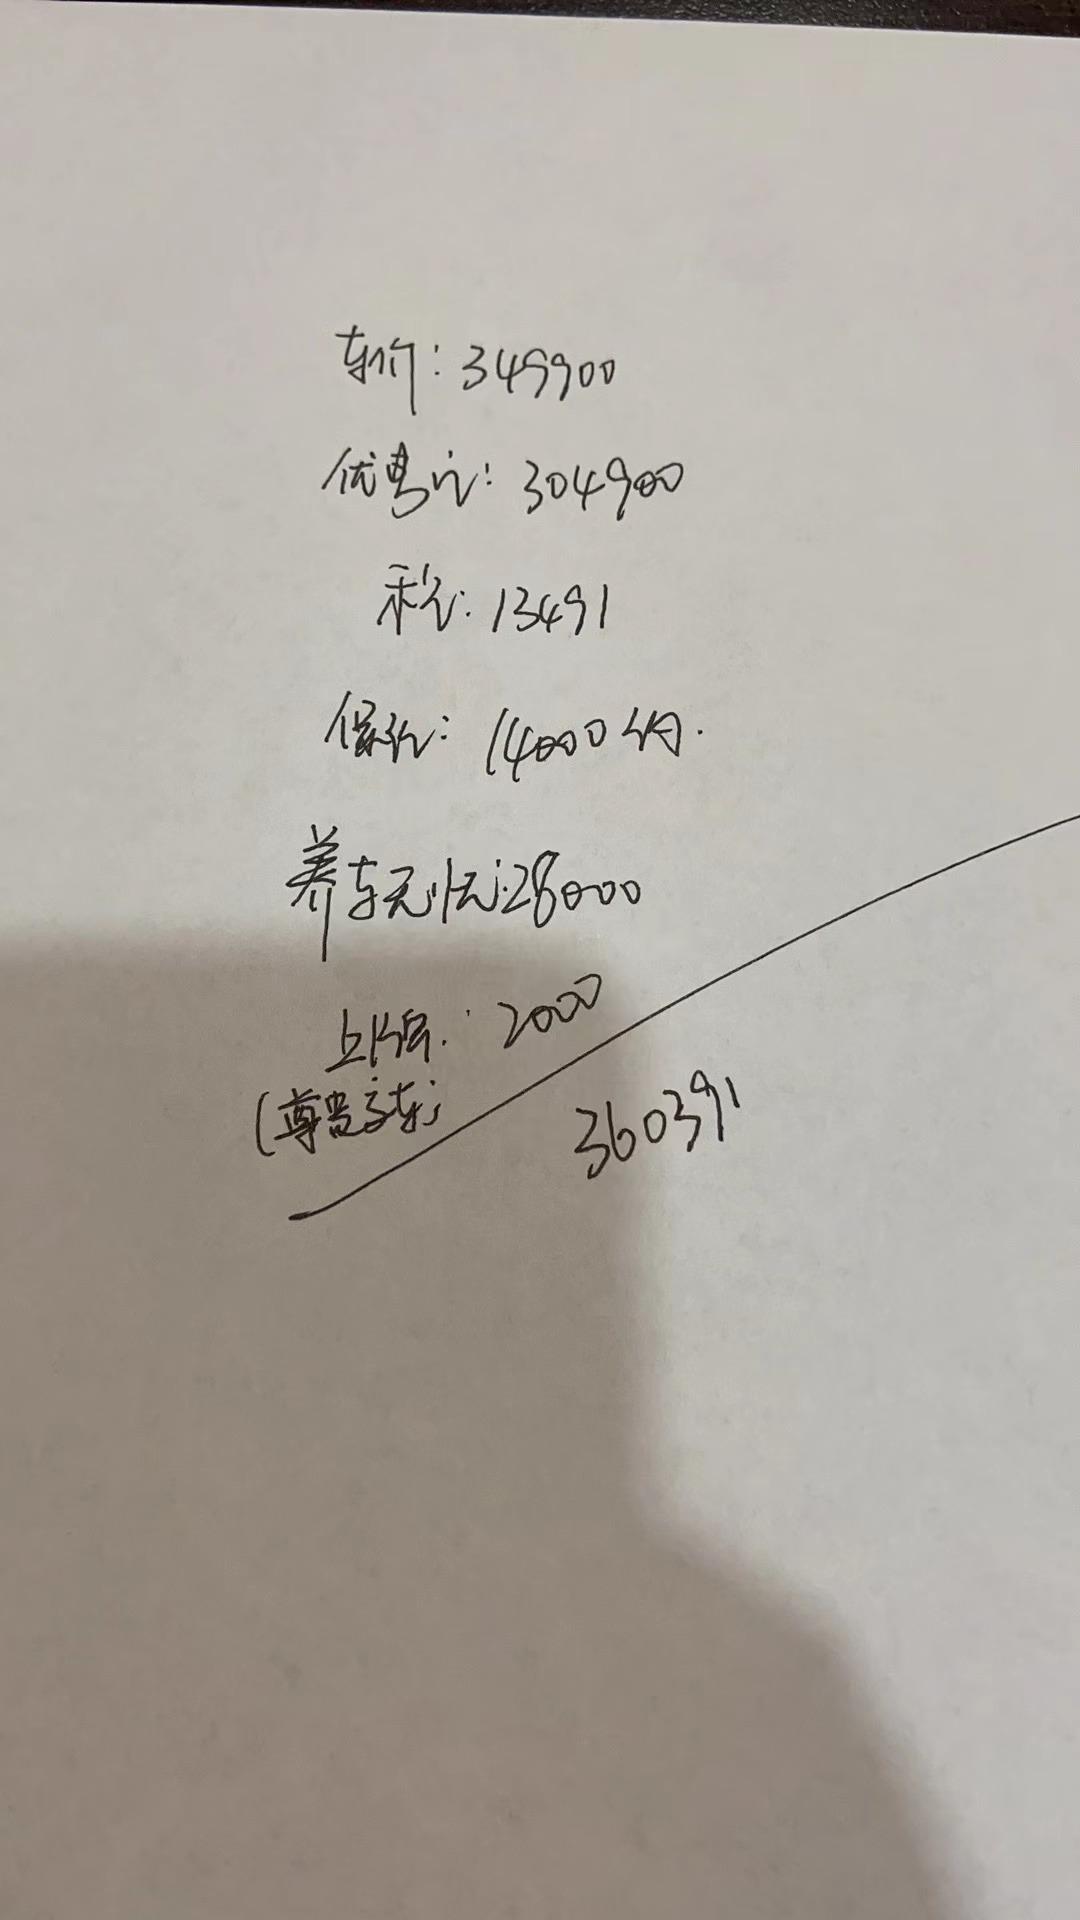 车价:349900
优惠完:304900
税:13491
保险:14000约.
养车无忧:28000
上牌:2000
(尊贵交车)
360391